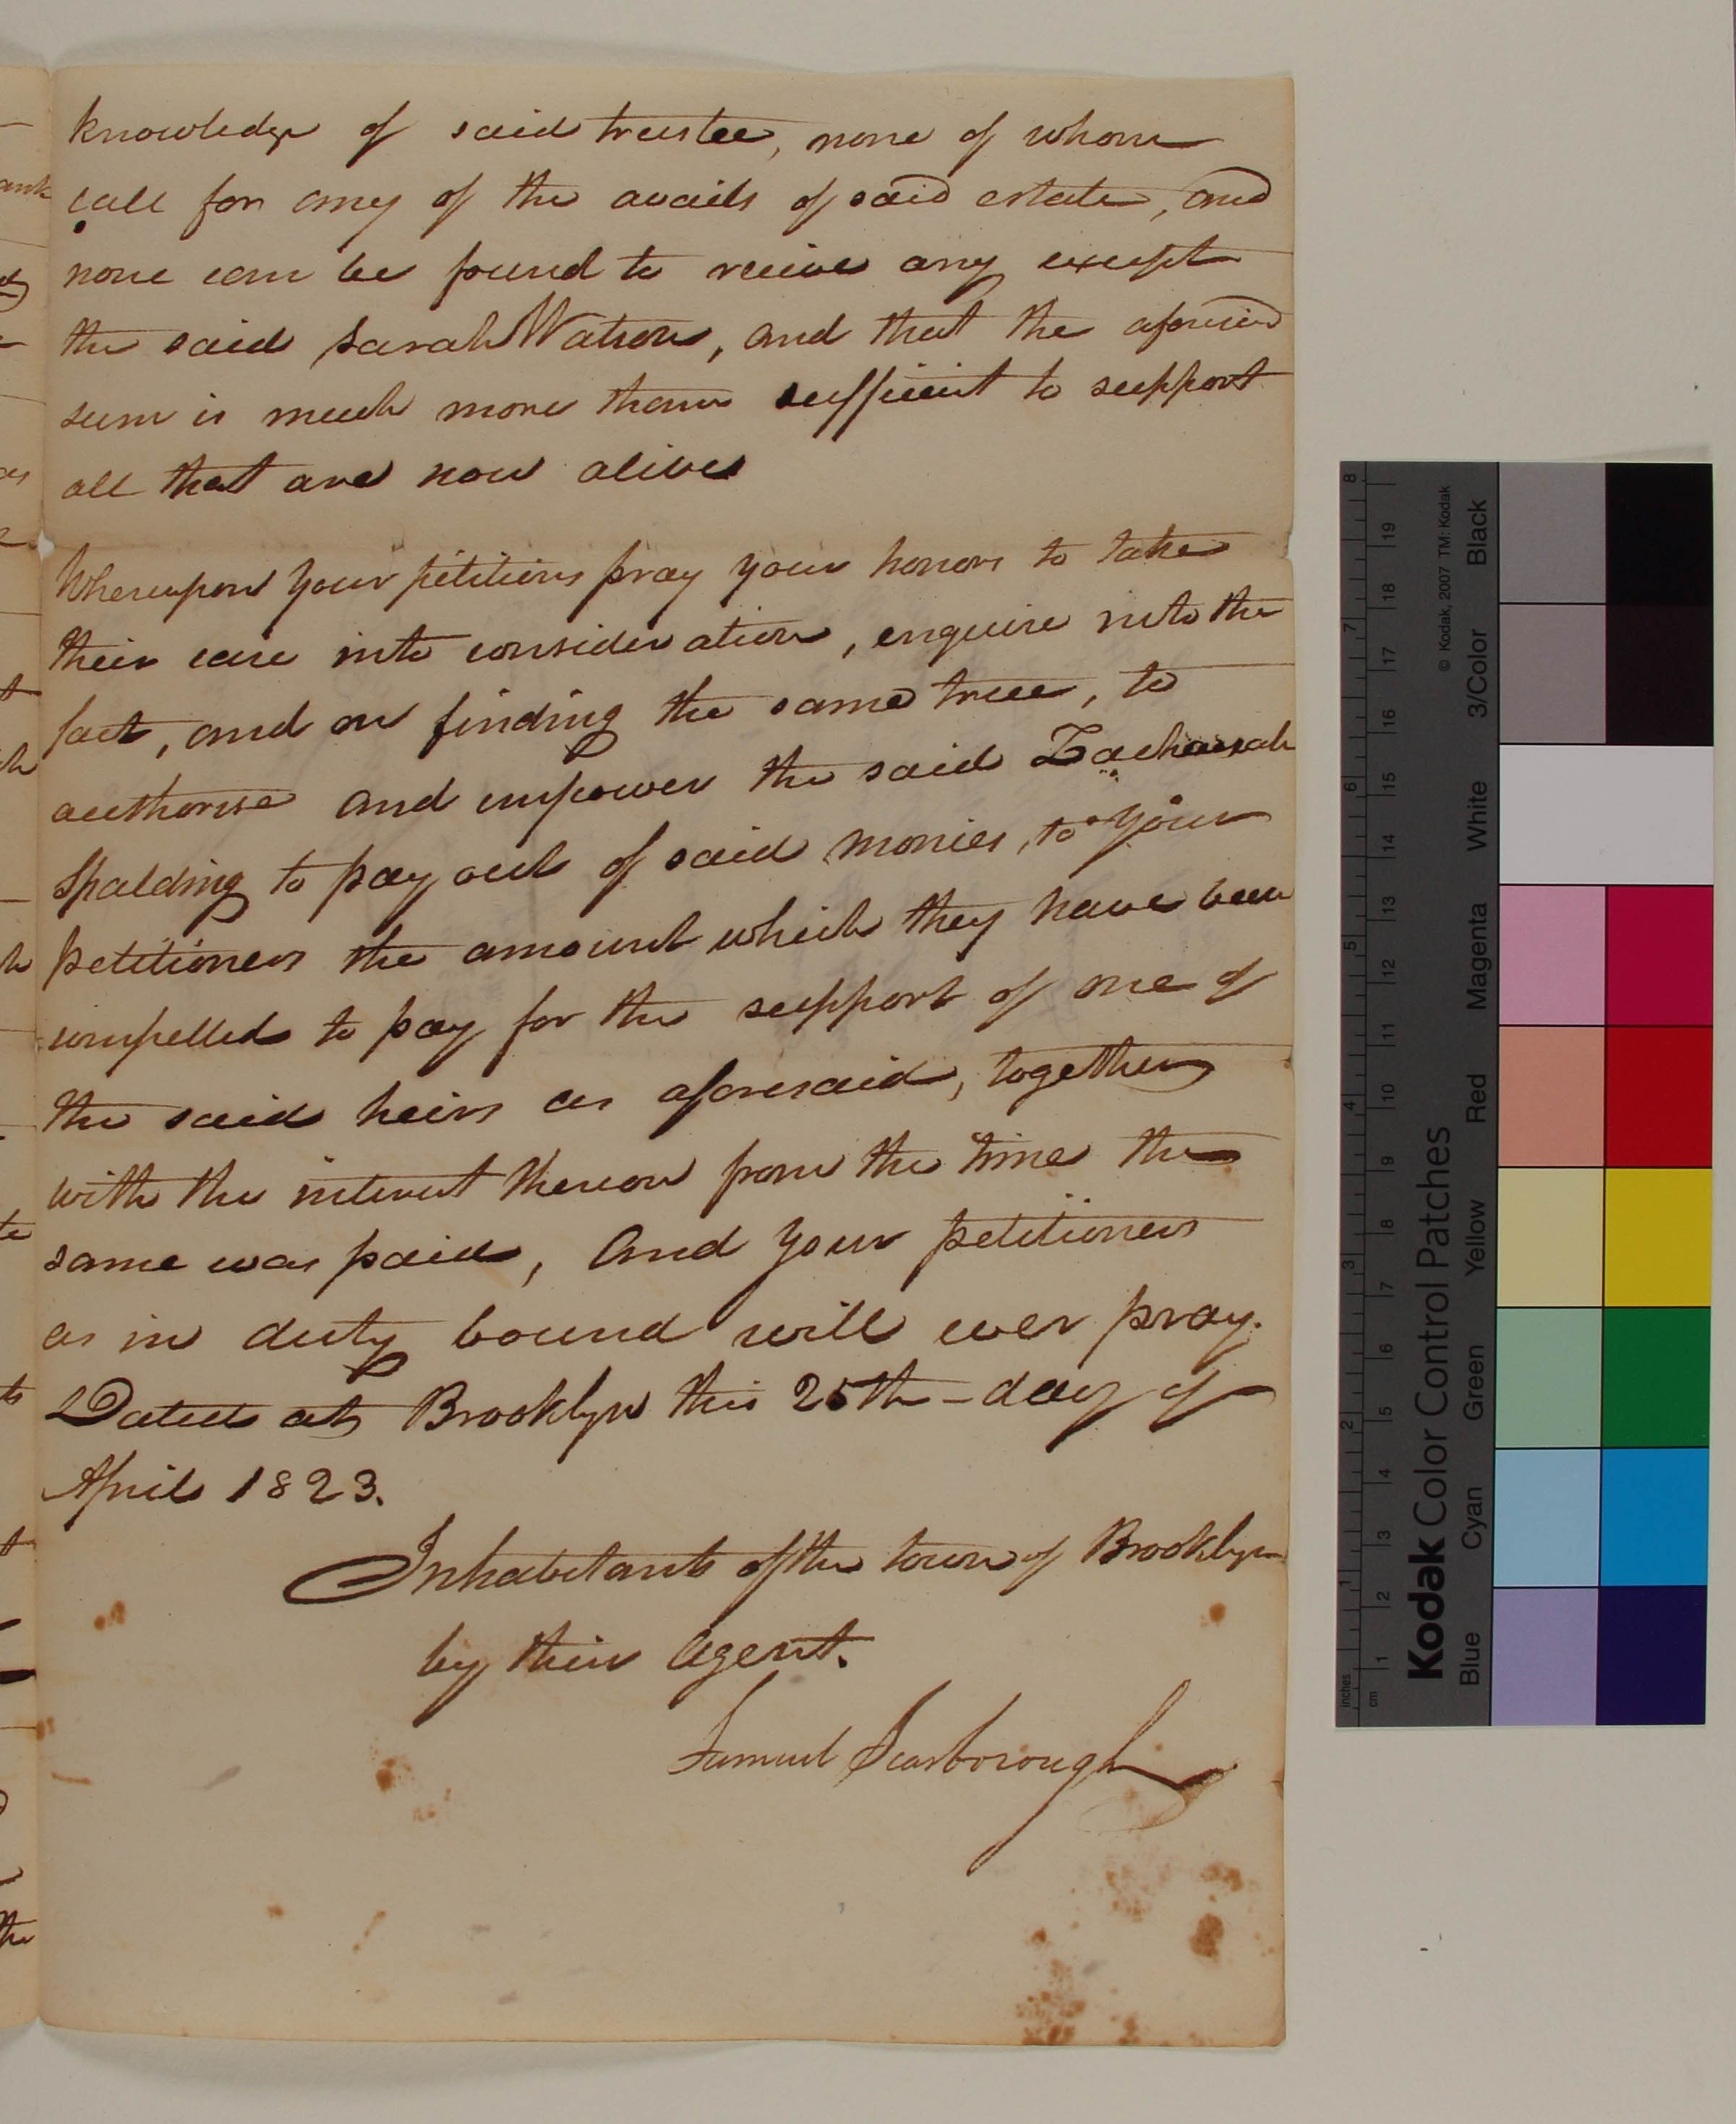 knowledge of said trustee, none of whom
call for any of the avails of said estate, and
none can be found to receive any except
the said Sarah Watson, and that the aforesaid
sum is much more than sufficient to support
all that are now alive
Whereupon Your petitions pray your honors to take
their case into consideration, enquire into the
fact, and on finding the same true, to
authorise and empower the said Zachariah
Spalding to pay out of said monies, to your
petitioners the amount which they have been
compelled to pay for the support of one of
the said heirs as aforesaid, together
with the interest thereon from the time the
same was paid, And your petitioners
as in duty bound will ever pray.
Dated at Brooklyn this 25th - day of
April 1823.
Inhabitants of the town of Brooklyn
by their Agent.
Samuel Scarborough
Kodak Color Control Patches
© Kodak, 2007 TM: Kodak
Blue Cyan Green Yellow Red Magenta White 3/Color Black
inches 1 2 3 4 5 6 7 8
cm 1 2 3 4 5 6 7 8 9 10 11 12 13 14 15 16 17 18 19